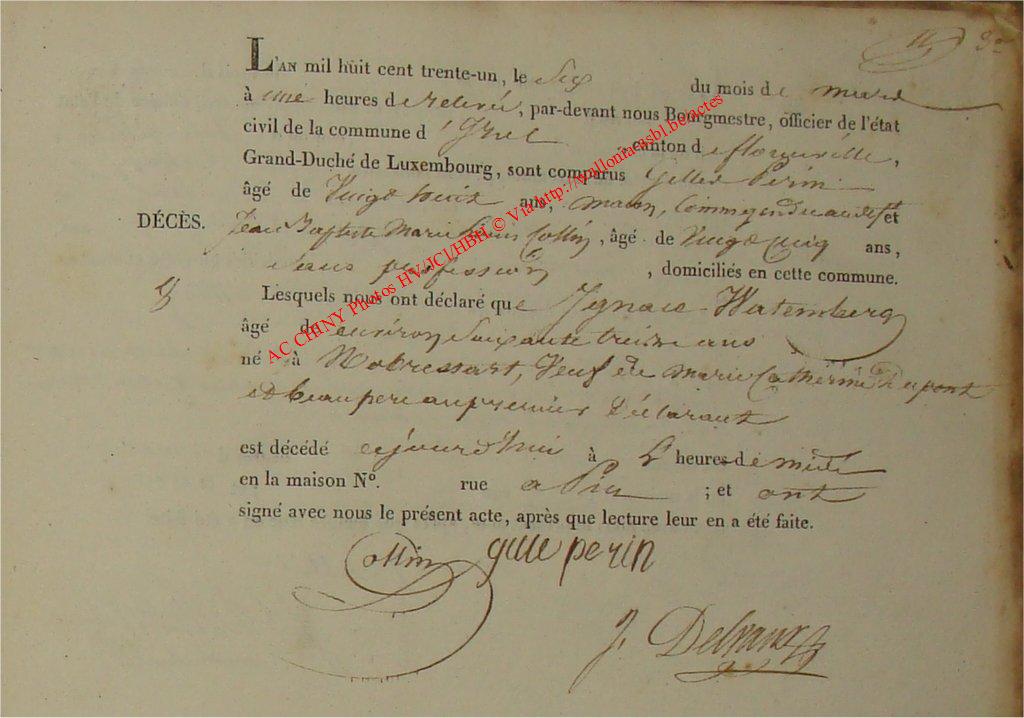 L'AN mil huit cent trente-un, le Six du mois de mars
à une heures de relevé, par-devant nous Bourgmestre, officier de l'état
civil de la commune d'Izel, canton de florenville,
Grand-Duché de Luxembourg, sont comparus Gilles Perin
âgé de Vingt huit ans, et
DÉCÈS.
Jean Baptiste Marie Collin, âgé de Vingt Cinq ans,
Sans profession, domiciliés en cette commune.
Lesquels nous ont déclaré que Ignace Watemberg
âgé de environ Soixante treize ans
né à Mobressart, Veuf de Marie Catherine Dupont
et beau pere au premier Déclarant
est décédé aujourd'hui à heures de
en la maison Nº. rue a Pin ; et ont
signé avec nous le présent acte, après que lecture leur en a été faite.
Collin gille perin
J. Delvaux
AC CHINY Photos HV/JCl/HBH © Via http://walloniaasbl.be/actes